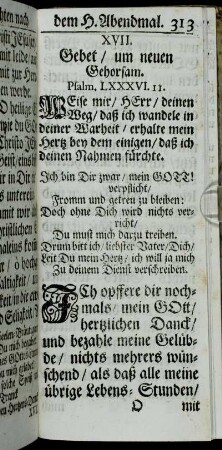 dem H. Abendmal. 313
XVII.
Gebet / um neuen
Gehorsam.
Psalm, LXXXVI. 11.
WEise mir / HErr / deinen
Weg / daß ich wandele in
deiner Warheit / erhalte mein
Hertz bey dem einigen / daß ich
deinen Nahmen fürchte.
Ich bin Dir zwar / mein GOTT!
verpflicht /
Fromm und getreu zu bleiben:
Doch ohne Dich wird nichts ver-
richt /
Du must mich darzu treiben.
Drum bitt ich / liebster Vater / Dich /
Leit Du mein Hertz / ich will ja mich
Zu deinem Dienst verschreiben.
ICh opffere dir noch-
mals / mein GOtt /
hertzlichen Danck /
und bezahle meine Gelüb-
de / nichts mehrers wün-
schend / als daß alle meine
übrige Lebens-Stunden /
O mit